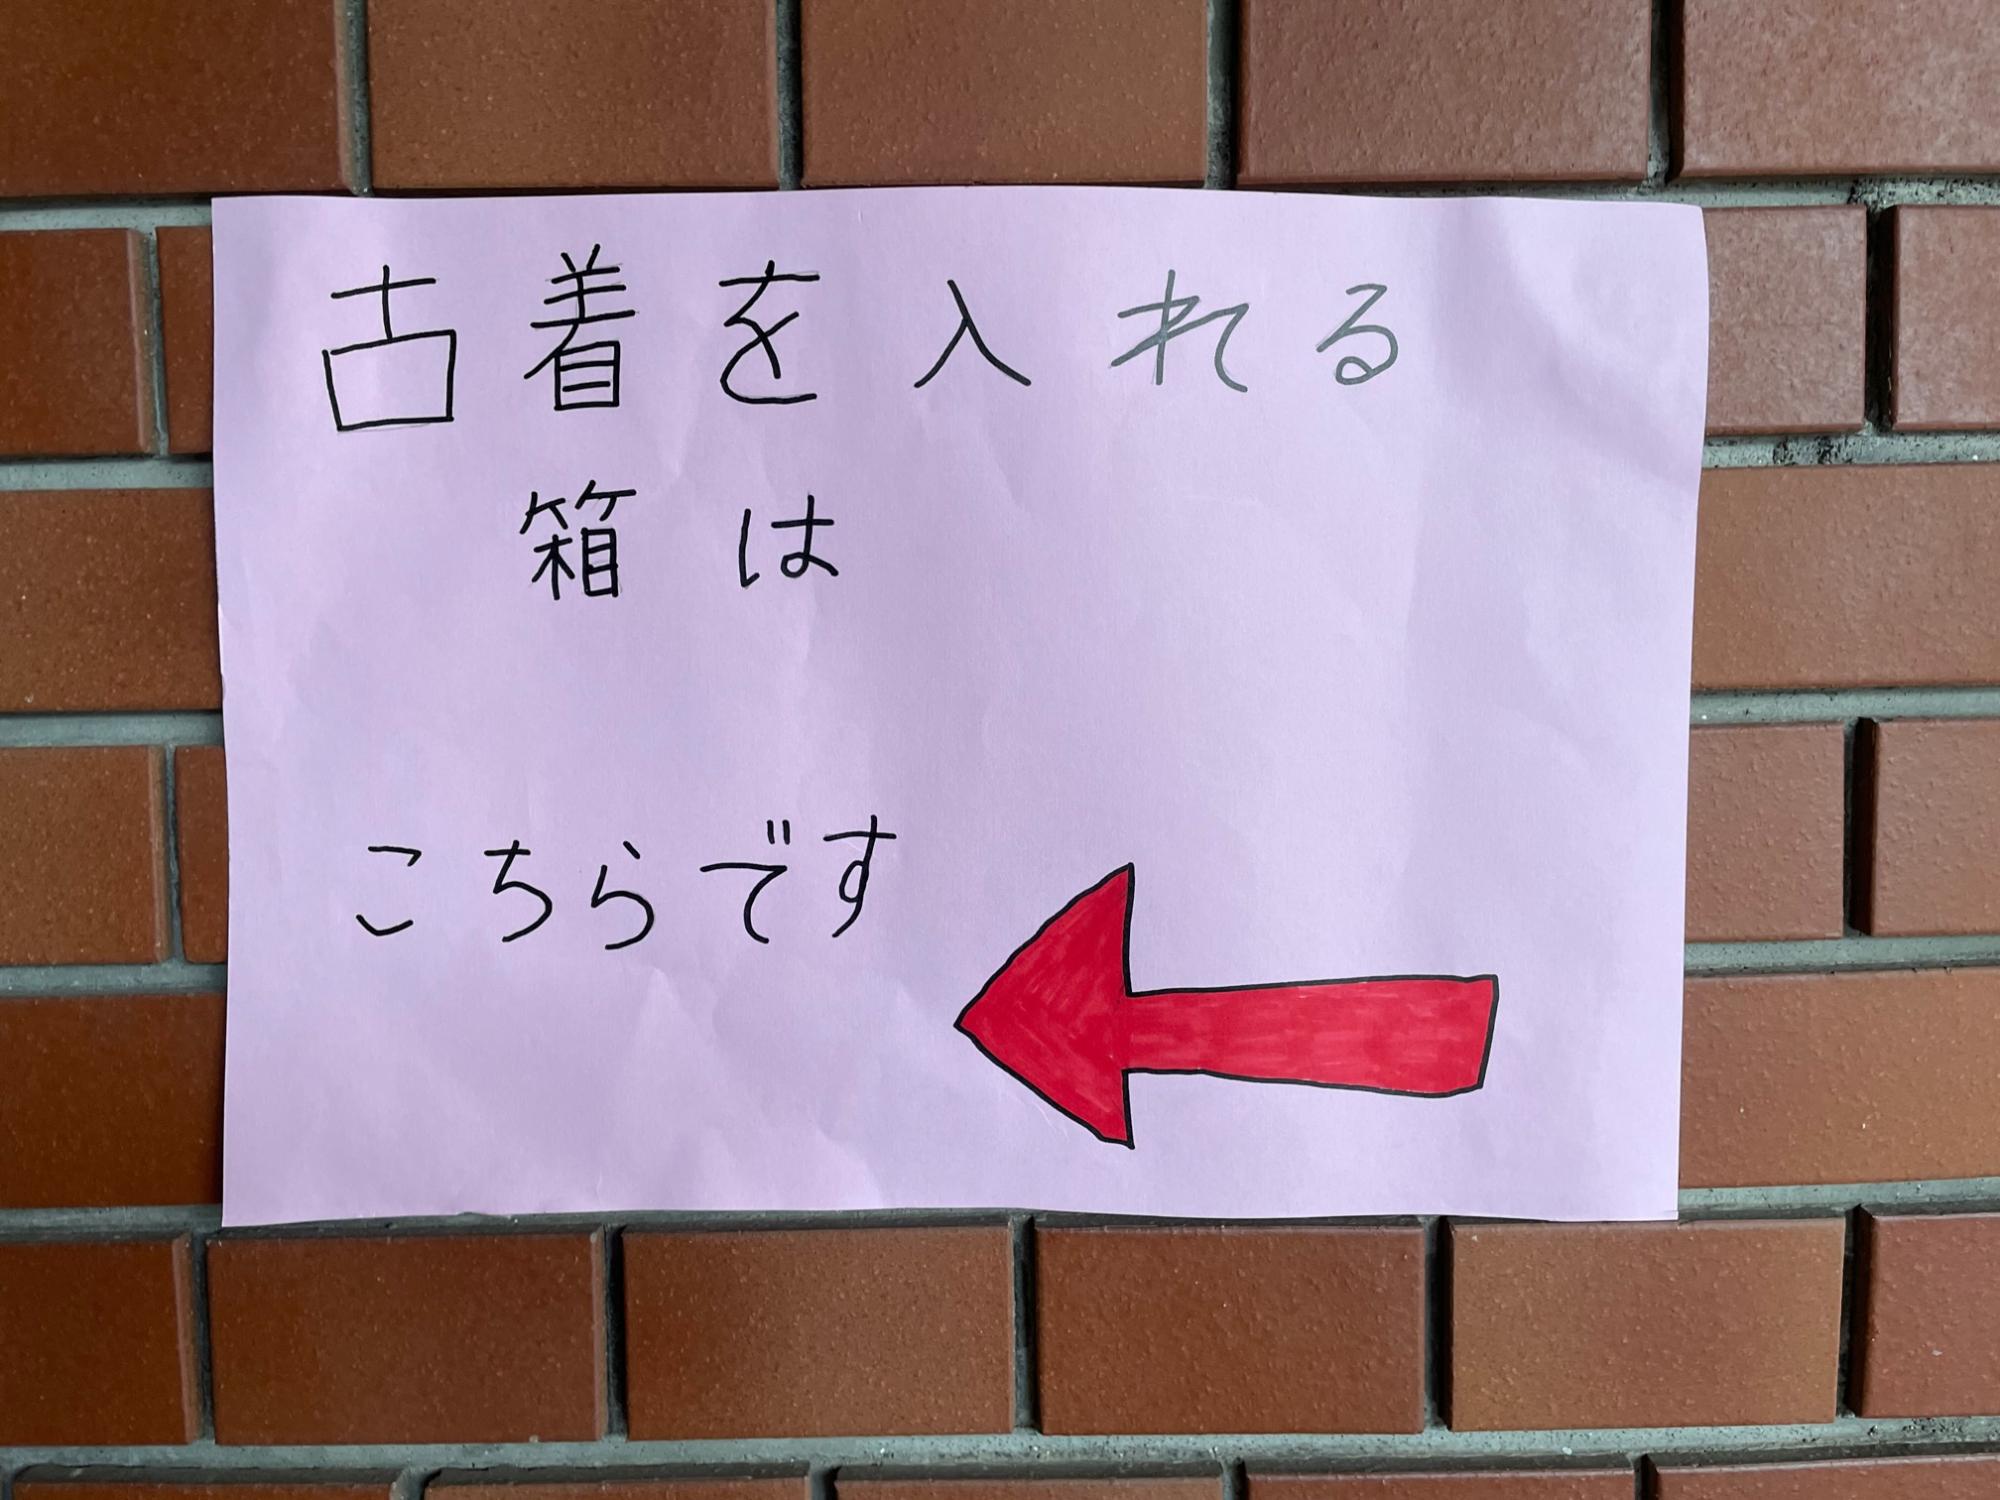 古着を入れる
箱は
こちらです